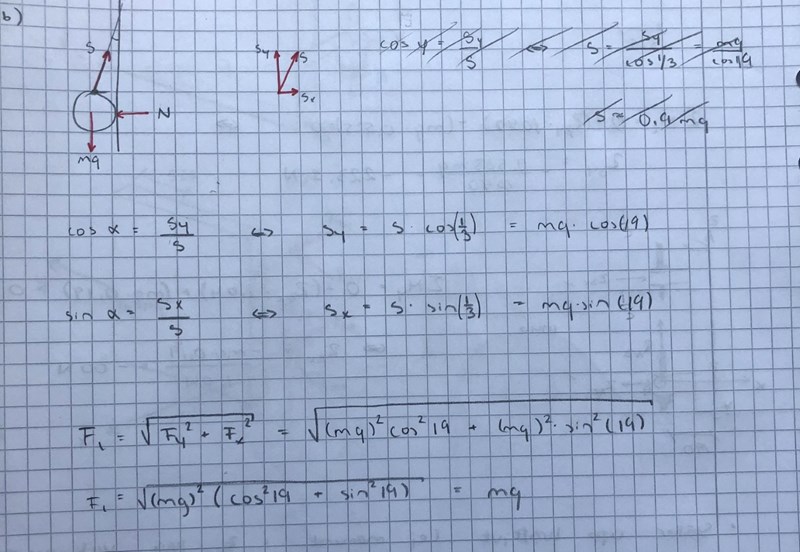 b)
S
N
mg
Sy S
Sx
cos y = Sy/S ⇔ S = Sy/cos 1/3 = mg/cos 19
S = 0.9 mg
cos α = Sy/S ⇔ Sy = S · cos(1/3) = mg · cos(19)
sin α = Sx/S ⇔ Sx = S · sin(1/3) = mg · sin(19)
F₁ = √(Fy² + Fx²) = √((mg)² cos² 19 + (mg)² · sin² (19))
F₁ = √((mg)² (cos² 19 + sin² 19)) = mg